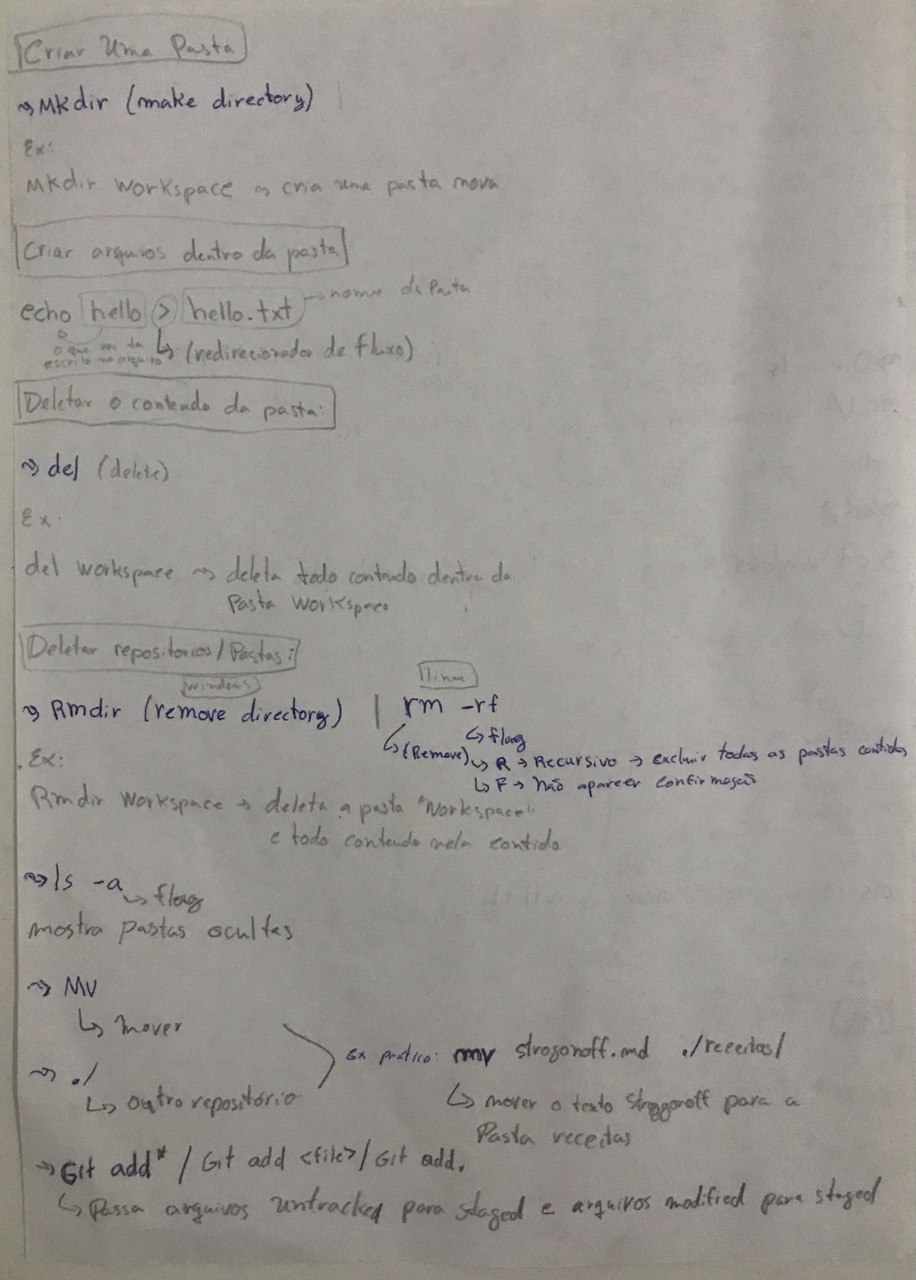 Criar Uma Pasta
→ Mkdir (make directory)
Ex:
Mkdir Workspace → cria uma pasta nova
Criar arquivos dentro da pasta
echo hello > hello.txt → nome da Pasta
o que vai ta escrito no arquivo ↳ (redirecionador de fluxo)
Deletar o conteudo da pasta:
→ del (delete)
Ex:
del workspace → deleta todo conteudo dentro da
Pasta Workspace
Deletar repositorios/Pastas:
windows linux
→ Rmdir (remove directory) | rm -rf
↳ (Remove) ↳ flag
↳ R → Recursivo → excluir todas as pastas contidas
↳ F → Não aparecer confirmação
Ex:
Rmdir Workspace → deleta a pasta "Workspace"
e todo conteudo nela contido
→ ls -a
↳ flag
mostra pastas ocultas
→ Mv
↳ mover
→ ./
↳ outro repositorio
Ex prático: mv strogonoff.md ./receitas/
↳ mover o texto Stroggonoff para a
Pasta receitas
→ Git add* / Git add <file> / Git add.
↳ Passa arquivos untracked para staged e arquivos modified para staged